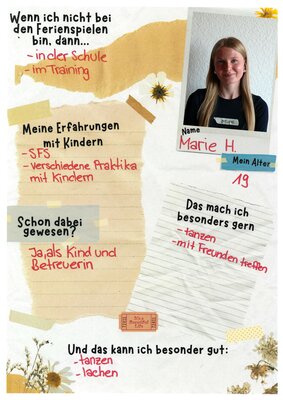 Wenn ich nicht bei
den Ferienspielen
bin, dann...
- in der Schule
- im Training
Name
Marie H.
Mein Alter
19
Meine Erfahrungen
mit Kindern
- SFS
- verschiedene Praktika
mit Kindern
Das mach ich
besonders gern
- tanzen
- mit Freunden treffen
Schon dabei
gewesen?
Ja, als Kind und
Betreuerin
Und das kann ich besonder gut:
- tanzen
- lachen